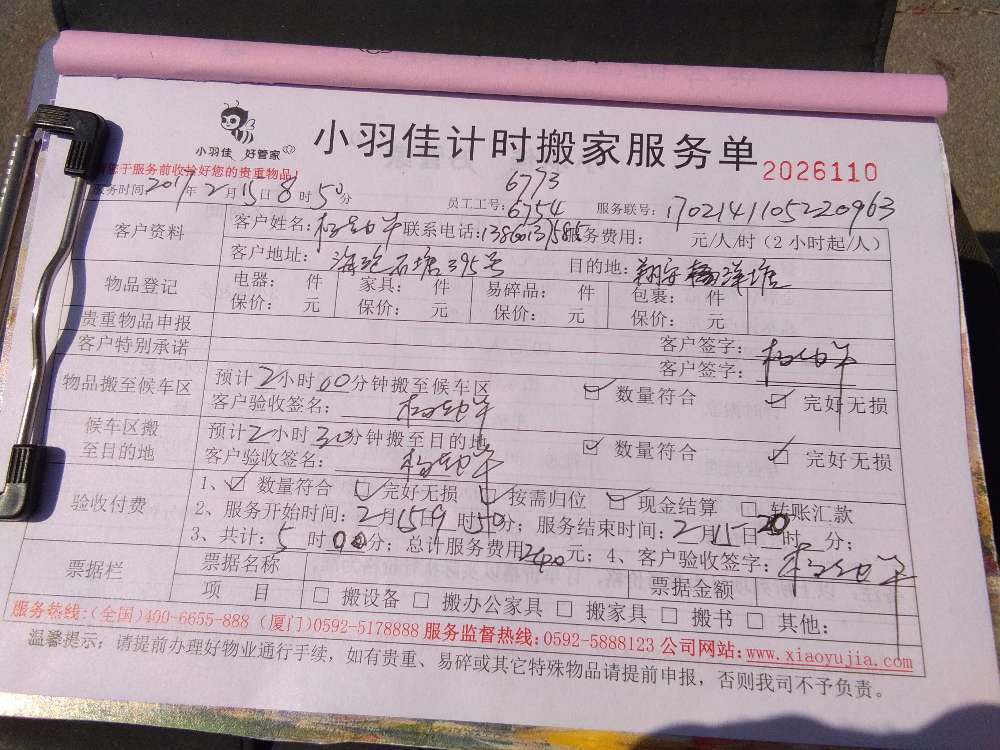 小羽佳 好管家
小羽佳计时搬家服务单
2026110
您于服务前收拾好您的贵重物品!
服务时间2017年2月15日8时50分
员工工号:6773 6754
服务联号:1702141105220963
客户资料
客户姓名: 联系电话: 服务费用: 元/人/时(2小时起/人)
客户地址:海沧石塘395号 目的地:翔安
物品登记
电器: 件 家具: 件 易碎品: 件 包裹: 件
保价: 元 保价: 元 保价: 元 保价: 元
贵重物品申报
客户签字:
客户特别承诺
客户签字:
物品搬至候车区
预计2小时00分钟搬至候车区 数量符合 完好无损
客户验收签名:
候车区搬至目的地
预计2小时30分钟搬至目的地 数量符合 完好无损
客户验收签名:
验收付费
1、数量符合 完好无损 按需归位 现金结算 转账汇款
2、服务开始时间:2月15日9时50分;服务结束时间:2月15日 时 分;
3、共计:5时00分;总计服务费用 元;4、客户验收签字:
票据栏
票据名称 票据金额
项 目 搬设备 搬办公家具 搬家具 搬书 其他:
服务热线:(全国)400-6655-888 (厦门)0592-5178888 服务监督热线:0592-5888123 公司网站:www.xiaoyujia.com
温馨提示:请提前办理好物业通行手续,如有贵重、易碎或其它特殊物品请提前申报,否则我司不予负责。